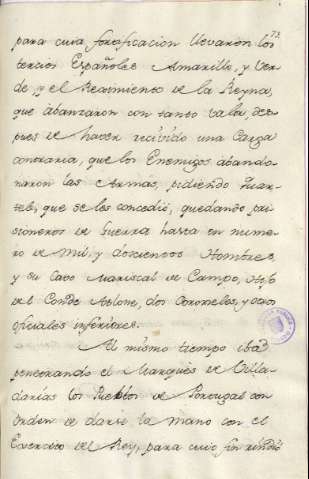 73
para cuia fortificacion llevaron los
tercios Españoles Amarillo, y Ver
de, y el Regimiento de la Reyna,
que abanzaron con tanto valor, des
pues de haver recivido una Carga
contraria, que los Enemigos abando
naron las Armas, pidiendo Quar
tel, que se les concedió, quedando pri
sioneros de Guerra hasta en nume
ro de mil, y doscientos Hombres,
y su Cavo Mariscal de Campo, Hijo
del Conde Atlone, dos Coroneles, y otros
oficiales inferiores.
Al mismo tiempo iba
penetrando el Marquès de Villa
darias los Pueblos de Portugal con
orden de darse la mano con el
Exercito del Rey, para cuio fin rindió